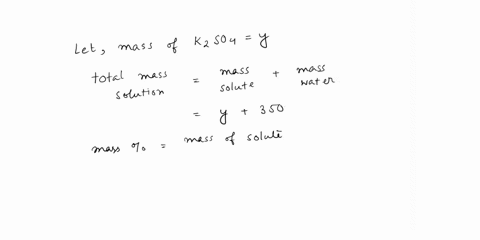 Let, mass of K2SO4 = y
total mass solution = mass solute + mass water
= y + 350
mass % = mass of solute